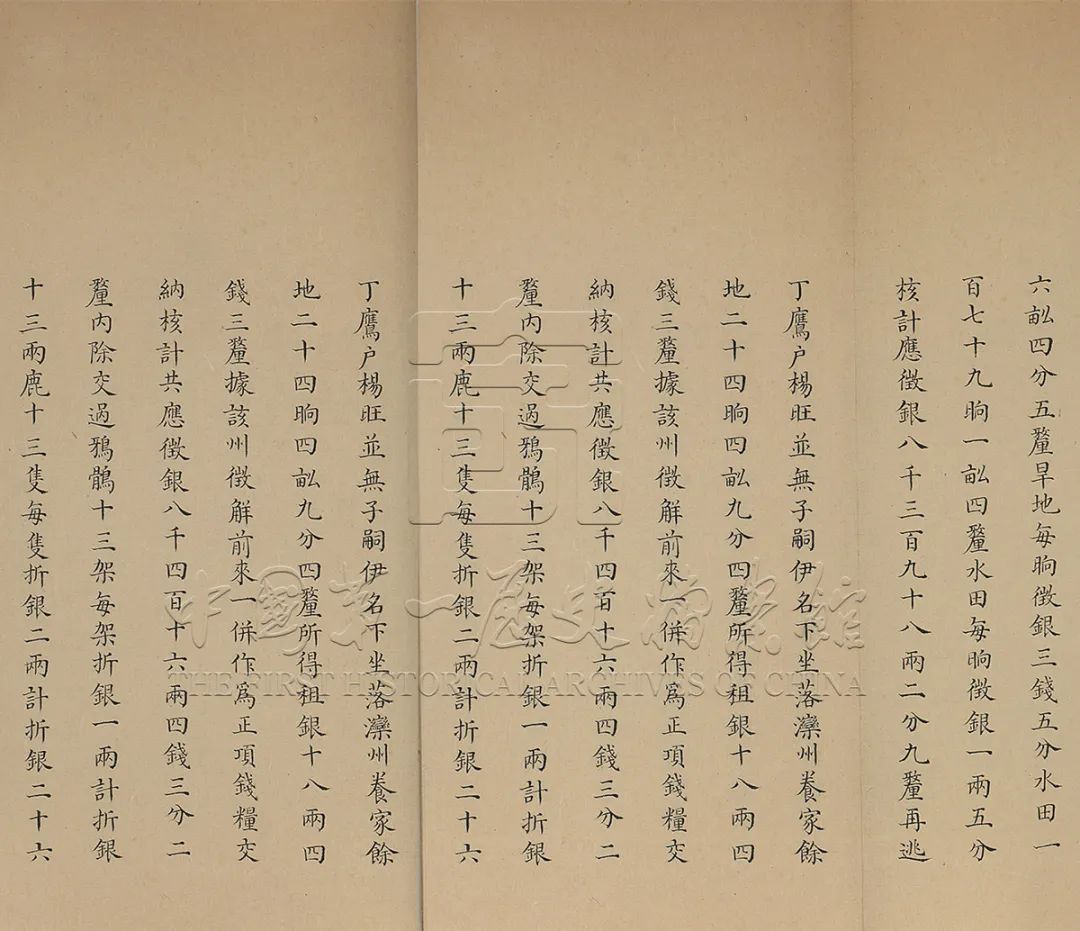 六畝四分五釐旱地每晌徵銀三錢五分水田一
百七十九晌一畝四釐水田每晌徵銀一兩五分
核計應徵銀八千三百九十八兩二分九釐再逃
丁鷹户楊旺並無子嗣伊名下坐落灤州養家餘
地二十四晌四畝九分四釐所得租銀十八兩四
錢三釐據該州徵解前來一併作爲正項錢糧交
納核計共應徵銀八千四百十六兩四錢三分二
釐内除交過鴉鶻十三架每架折銀一兩計折銀
十三兩鹿十三隻每隻折銀二兩計折銀二十六
丁鷹户楊旺並無子嗣伊名下坐落灤州養家餘
地二十四晌四畝九分四釐所得租銀十八兩四
錢三釐據該州徵解前來一併作爲正項錢糧交
納核計共應徵銀八千四百十六兩四錢三分二
釐内除交過鴉鶻十三架每架折銀一兩計折銀
十三兩鹿十三隻每隻折銀二兩計折銀二十六
中國第一歷史檔案館
THE FIRST HISTORICAL ARCHIVES OF CHINA